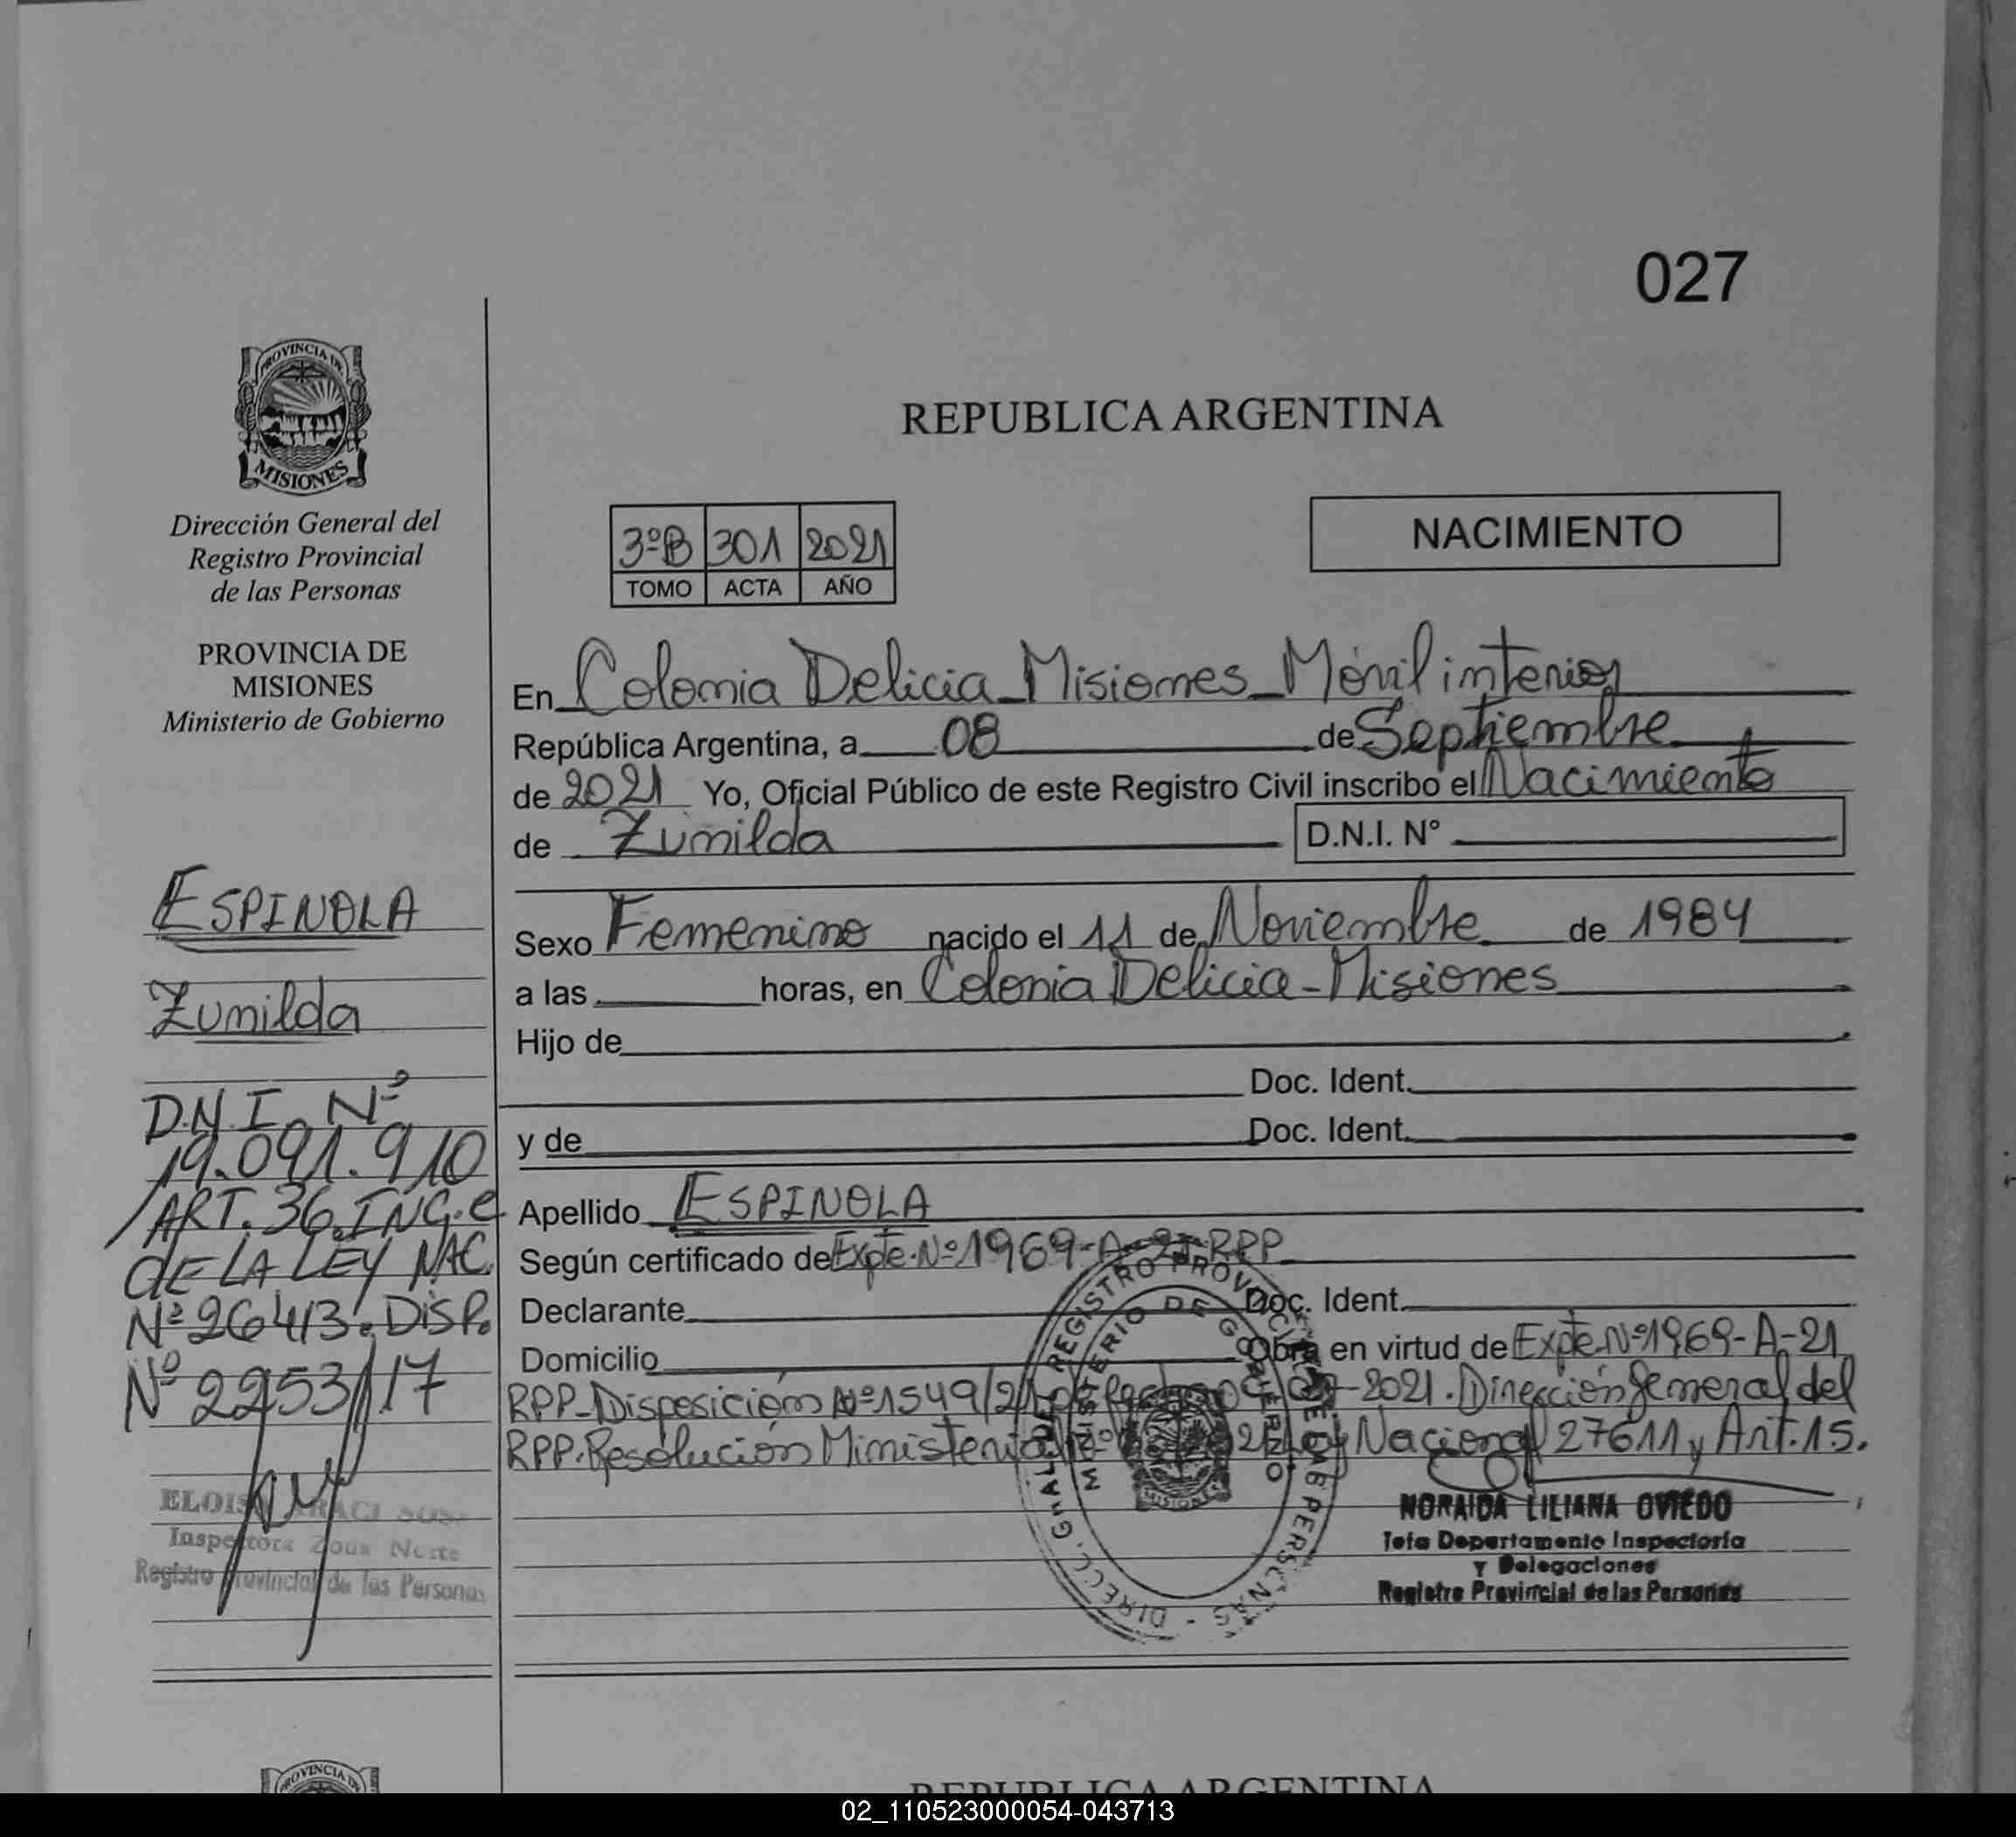 027
PROVINCIA DE
MISIONES
Dirección General del
Registro Provincial
de las Personas
PROVINCIA DE
MISIONES
Ministerio de Gobierno
ESPINOLA
Zunilda
D.N.I. Nº
19.091.910
ART. 36. INC. e
dE LA LEY NAC.
Nº 26413. DISP.
Nº 2253/17
Inspectora Zona Norte
Registro Provincial de las Personas
REPUBLICA ARGENTINA
3ºB 301 2021
TOMO ACTA AÑO
NACIMIENTO
En Colonia Delicia_Misiones_Móvil interior
República Argentina, a 08 de Septiembre
de 2021 Yo, Oficial Público de este Registro Civil inscribo el Nacimiento
de Zunilda D.N.I. N°
Sexo Femenino nacido el 11 de Noviembre de 1984
a las horas, en Colonia Delicia-Misiones
Hijo de
Doc. Ident.
y de Doc. Ident.
Apellido ESPINOLA
Según certificado de Expte.Nº1969-A-21-RPP
Declarante Doc. Ident.
Domicilio Obra en virtud de Expte.Nº1969-A-21
RPP-Disposición Nº1549/21 de fecha 2021. Dirección General del
RPP. Resolución Ministerial Nº Ley Nacional 27611 y Art. 15.
DIRECC. GRAL. DEL REGISTRO PROVINCIAL DE LAS PERSONAS
MINISTERIO DE GOBIERNO
MISIONES
NORAIDA LILIANA OVIEDO
Jefa Departamento Inspectoría
y Delegaciones
Registro Provincial de las Personas
PROVINCIA DE
REPUBLICA ARGENTINA
02_110523000054-043713